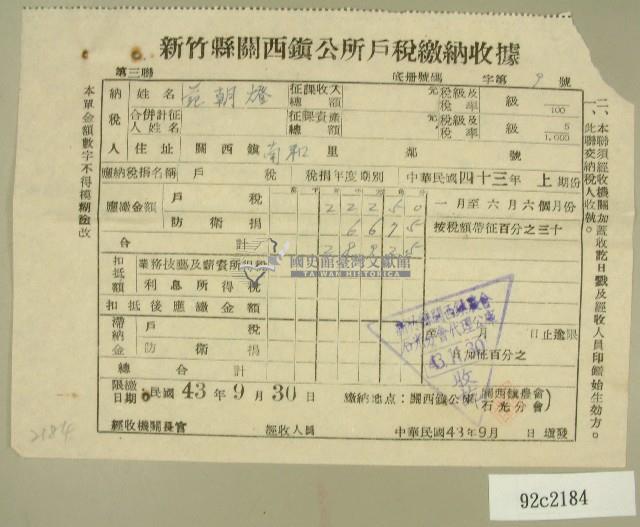 新竹縣關西鎮公所戶稅繳納收據
第三聯
底册號碼 字第 9 號
納稅人
姓名 范朝燈
征課收入總額 元
稅級及稅率 級 100
合併計征人姓名
征課資產總額 元
稅級及稅率 級 5 1,000
住址 關西鎮 南和 里 鄰 號
應納稅捐名稱 戶 稅
稅捐年度期別 中華民國四十三年 上期份
應繳金額 戶 稅 2 2 2 5 0
一月至六月六個月份
防衛捐 6 6 7 5
按稅額帶征百分之三十
合計 2 8 9 2 5
扣抵額
業務技藝及薪資所得稅
利息所得稅
扣抵後應繳金額
滯納金
戶 稅
年 月 日止逾限
防衛捐
月加征百分之
總合計
限繳日期:民國 43 年 9 月 30 日
繳納地点:關西鎮公庫(關西鎮農會石光分會)
經收機關長官
經收人員
中華民國43年9月 日填發
本單金額數字不得模糊塗改
二、本聯須經收機關加蓋收訖日戳及經收人員印鑑始生効方。
此聯交納稅人收執。
國史館臺灣文獻館
TAIWAN HISTORICA
43.11.30
收訖
2184
92c2184